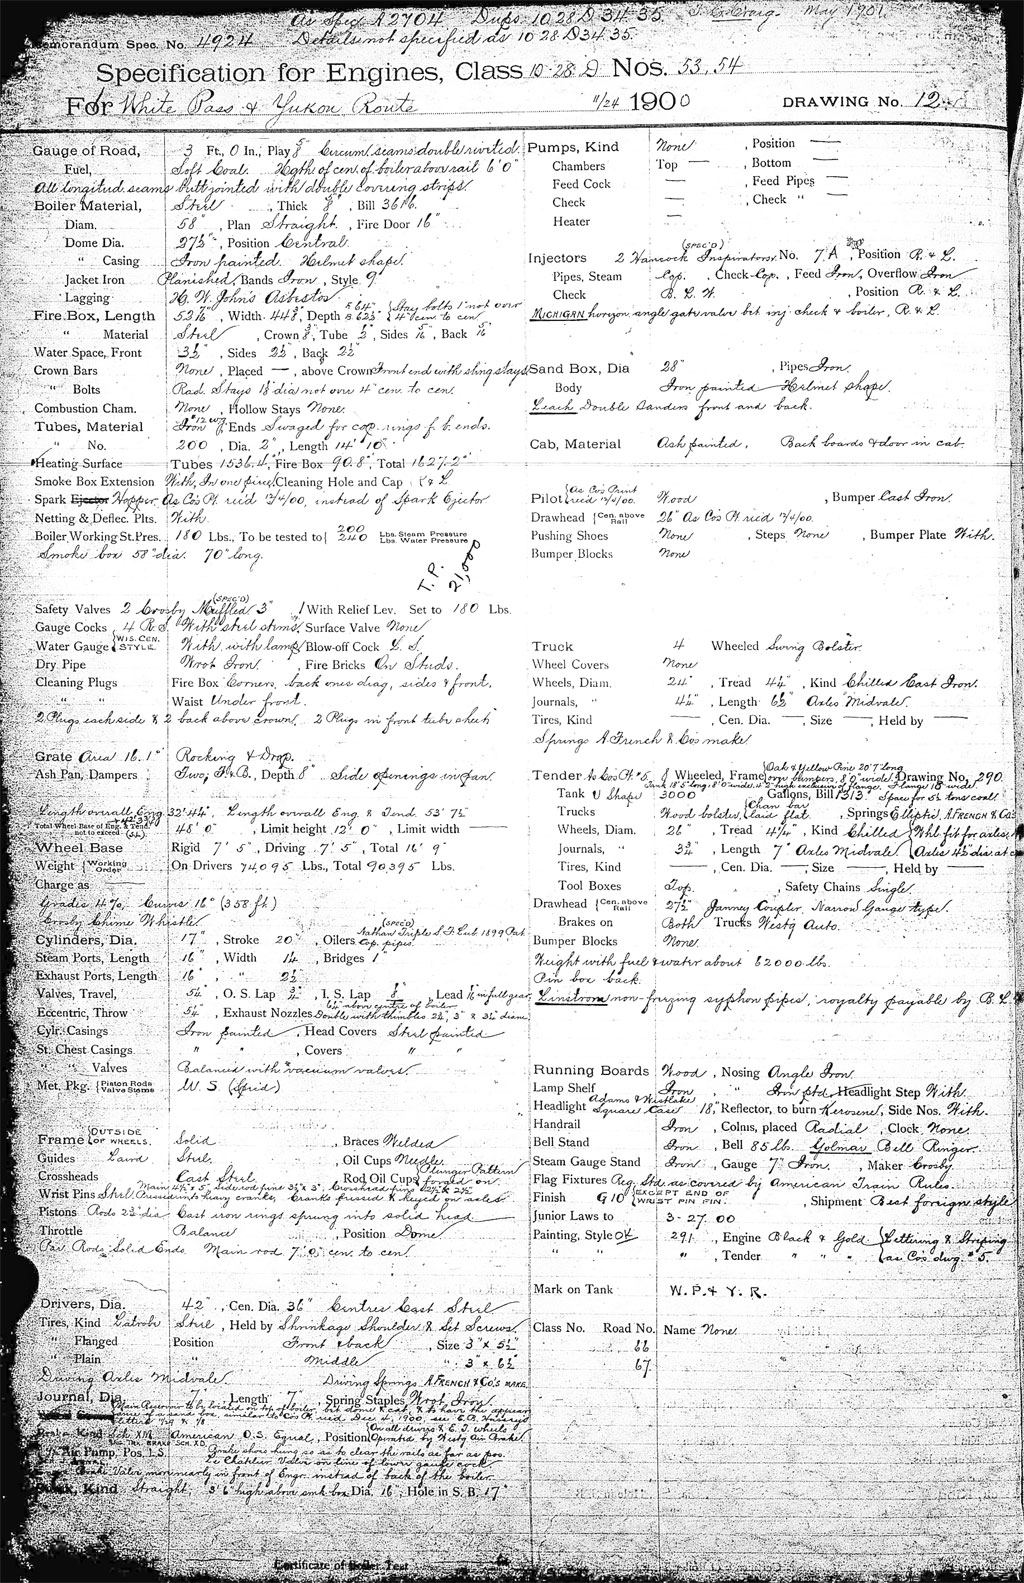 As Spec A2704 Dups. 10 28 D 34.35. May 1901
Memorandum Spec. No. 4924 Details not specified as 10 28 D 34 35.
Specification for Engines, Class 10-28 D Nos. 53, 54
For White Pass & Yukon Route 11/24 1900 DRAWING No. 12
Gauge of Road, 3 Ft., 0 In., Play Circum. seams double riveted.
Fuel, Soft Coal. Hgth of cen. of boiler above rail 6' 0"
All longitud. seams butt jointed with double covering strips.
Boiler Material, Steel, Thick , Bill 3616.
Diam. 58", Plan Straight, Fire Door 16"
Dome Dia. 27½", Position Central.
" Casing Iron painted. Helmet shape.
Jacket Iron Planished, Bands Iron, Style 9
Lagging H. W. John's Asbestos
Fire Box, Length , Width , Depth Stay bolts 1" not over 4" cen to cen
" Material Steel, Crown , Tube ½, Sides , Back
Water Space, Front 3½", Sides 2½, Back 2½
Crown Bars None, Placed —, above Crown Front end with sling stays
" Bolts Rad. Stays dia not over 4" cen. to cen.
Combustion Cham. None, Hollow Stays None.
Tubes, Material Iron 12 wg, Ends Swaged for cop. rings f. b. ends.
" No. 200, Dia. 2", Length 14' 10"
Heating Surface Tubes 1536.4, Fire Box 90.8, Total 1627.2
Smoke Box Extension With, In one piece, Cleaning Hole and Cap R & L
Spark Ejector Hopper As Co's Pt. rec'd 12/4/00, instead of Spark Ejector
Netting & Deflec. Plts. With.
Boiler Working St. Pres. 180 Lbs., To be tested to 200 Lbs. Steam Pressure 240 Lbs. Water Pressure
Smoke box 58" dia. 70" long.
T. P. 21,000
Safety Valves 2 Crosby (SPEC'D) Muffled 3" 1 With Relief Lev. Set to 180 Lbs.
Gauge Cocks 4 R. S. With steel stems, Surface Valve None
Water Gauge WIS. CEN. STYLE. With, with lamp, Blow-off Cock L. S.
Dry Pipe Wrot Iron, Fire Bricks On Studs.
Cleaning Plugs Fire Box Corners, back ones diag, sides & front.
" " Waist Under front.
2 Plugs each side & 2 back above crown. 2 Plugs in front tube sheet
Grate Area 16.1 Rocking & Drop.
Ash Pan, Dampers Two, F. & B., Depth 8" Side openings in pan.
Length overall Eng 32' 4¾", Length overall Eng & Tend. 53' 7½
Total Wheel Base of Eng. & Tend. not to exceed 48' 0", Limit height 12' 0", Limit width —
Wheel Base Rigid 7' 5", Driving 7' 5", Total 16' 9"
Weight Working Order On Drivers 74095 Lbs., Total 90395 Lbs.
Charge as —
Grades 4%, Curves 16° (358 ft)
Crosby Chime Whistle
Cylinders, Dia. 17", Stroke 20", Oilers (SPEC'D) Nathan Triple S. F. Lub 1899 Pat. Cop. pipes.
Steam Ports, Length 16", Width 1¼, Bridges 1"
Exhaust Ports, Length 16", " 2½
Valves, Travel, , O. S. Lap , I. S. Lap , Lead in full gear.
Eccentric, Throw , Exhaust Nozzles Double with thimbles 2¾, 3" & 3¼" diam.
Cylr. Casings Iron painted, Head Covers Steel painted
St. Chest Casings " ", Covers " "
" " Valves Balanced with vacuum valves.
Met. Pkg. Piston Rods Valve Stems U. S. (Spec'd)
Frame OUTSIDE OF WHEELS. Solid, Braces Welded
Guides Laird Steel., Oil Cups Needle
Crossheads Cast Steel, Rod Oil Cups Plunger Pattern forged on.
Wrist Pins Steel Cranks pressed & keyed on axles
Pistons Rods 2¾" dia Cast iron rings sprung into solid head
Throttle Balance, Position Dome.
Par. Rods Solid Ends. Main rod 7' 0" cen. to cen.
Drivers, Dia. 42", Cen. Dia. 36" Centres Cast Steel
Tires, Kind Latrobe Steel, Held by Shrinkage Shoulder & Set Screws.
" Flanged Position Front & back, Size 3" x 5½"
" Plain " Middle " 3" x 6½"
Driving Axles Midvale. Driving Springs A. FRENCH & CO'S MAKE.
Journal, Dia. 7", Length 7", Spring Staples Wrot Iron
Main Reservoir to be located on top of boiler bet dome & cab, & to have the appearance of sand box, similar to Co's Pt rec'd Dec 4, 1900, see
Brake Kind Sch XM American O. S. Equal, Position On all drivers & E. T. wheels Operated by Westg Air Brake
Air Pump, Pos. L. S. Brake shoes hung so as to clear the rails as far as pos.
Le Chatelier Valve on line of lower gauge cock
Brake Valve more nearly in front of Engr. instead of back of the boiler
Stack, Kind Straight, 3' 6" high above smk. box Dia. 16", Hole in S. B. 17"
Certificate of Boiler Test
Pumps, Kind None, Position —
Chambers Top —, Bottom —
Feed Cock —, Feed Pipes —
Check —, Check " —
Heater —
Injectors 2 Hancock (SPEC'D) Inspirators. No. 7 A, Position R. & L.
Pipes, Steam Cop., Check Cop., Feed Iron, Overflow Iron
Check B. L. W., Position R. & L.
MICHIGAN horizon. angle gate valve bet inj. check & boiler, R. & L.
Sand Box, Dia 28", Pipes Iron.
Body Iron painted Helmet shape.
Leach Double Sanders front and back.
Cab, Material Ash painted, Back boards & door in cab.
Pilot As Co's Print rec'd 12/4/00. Wood, Bumper Cast Iron.
Drawhead Cen. above Rail 26" As Co's Pt. rec'd 12/4/00.
Pushing Shoes None, Steps None, Bumper Plate With.
Bumper Blocks None
Truck 4 Wheeled Swing Bolster.
Wheel Covers None
Wheels, Diam. 24", Tread 4¼", Kind Chilled Cast Iron.
Journals, " 4¼", Length 6½" Axles Midvale.
Tires, Kind —, Cen. Dia. —, Size —, Held by —
Springs A. French & Co's make
Tender As Co's Pt. #5. 8 Wheeled, Frame Oak & Yellow Pine 20' 7" long over bumpers, 8' 0" wide. Drawing No. 290.
Tank U Shape 3000 Gallons, Bill 1313. Space for 5½ tons coal
Trucks Wood bolster, Chan bar laid flat, Springs Elliptic, A. FRENCH & Co's
Wheels, Diam. 26", Tread 4¼", Kind Chilled Whl fit for axles,
Journals, " 3¾", Length 7" Axles Midvale. Axles 4¾" dia. at
Tires, Kind —, Cen. Dia. —, Size —, Held by —
Tool Boxes Top, Safety Chains Single.
Drawhead Cen. above Rail 27½" Janney Coupler, Narrow Gauge type.
Brakes on Both Trucks Westg Auto.
Bumper Blocks None.
Weight with fuel & water about 62000 lbs.
Pin box back.
Linstrom non-freezing syphon pipes, royalty payable by B. L.
Running Boards Wood, Nosing Angle Iron.
Lamp Shelf Iron, " Iron ptd, Headlight Step With.
Headlight Adams & Westlake Square Case 18," Reflector, to burn Kerosene, Side Nos. With.
Handrail Iron, Colms, placed Radial, Clock None.
Bell Stand Iron, Bell 85 lb. Golmar Bell Ringer.
Steam Gauge Stand Iron, Gauge 7" Iron, Maker Crosby
Flag Fixtures Reg. Std. as covered by American Train Rules.
Finish G 10 EXCEPT END OF WRIST PIN FIN., Shipment Best foreign style
Junior Laws to 3-27.00
Painting, Style OK 291, Engine Black & Gold Lettering & Striping
" " ", Tender " " " as Co's dwg. #5.
Mark on Tank W. P. & Y. R.
Class No. Road No. Name None.
66
67